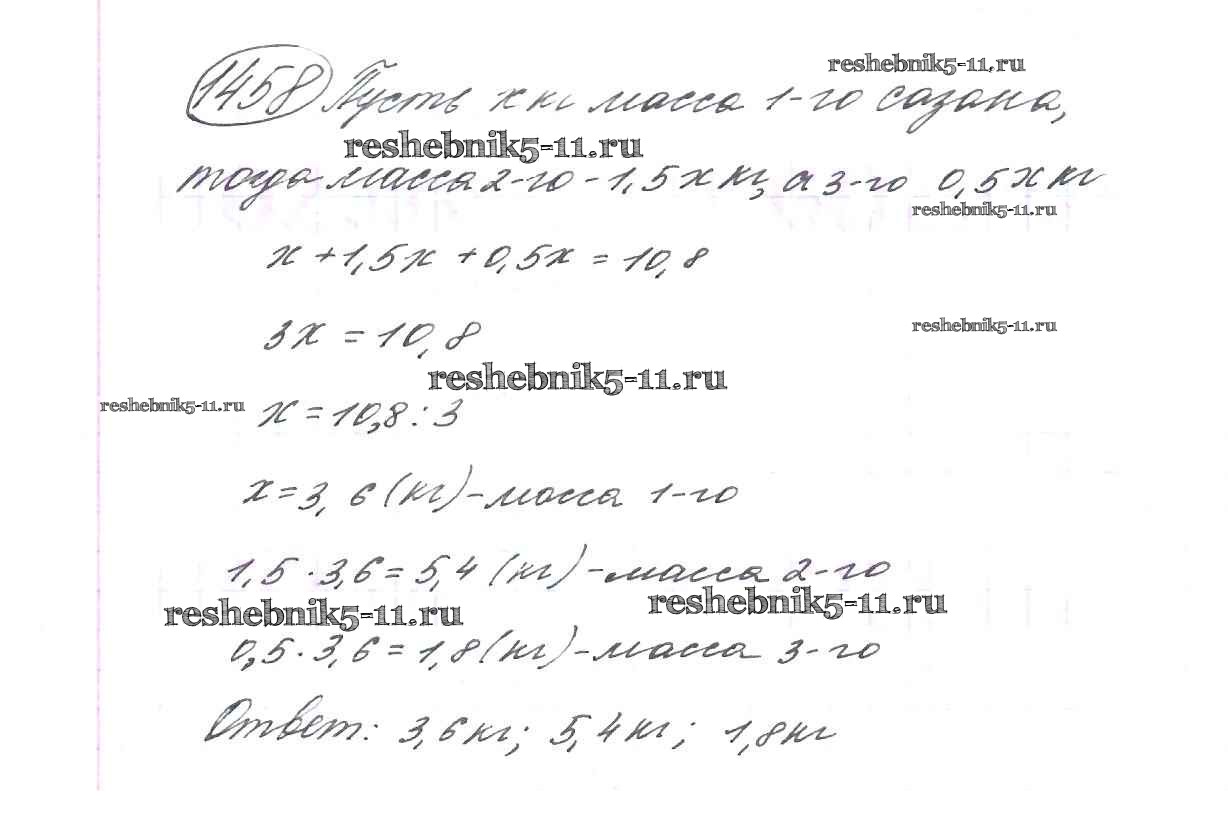 1458 Пусть x кг масса 1-го сазана,
reshebnik5-11.ru
reshebnik5-11.ru
тогда масса 2-го - 1,5x кг, а 3-го 0,5x кг
reshebnik5-11.ru
x + 1,5x + 0,5x = 10,8
3x = 10,8
reshebnik5-11.ru
reshebnik5-11.ru
reshebnik5-11.ru
x = 10,8 : 3
x = 3,6 (кг) - масса 1-го
1,5 · 3,6 = 5,4 (кг) - масса 2-го
reshebnik5-11.ru
reshebnik5-11.ru
0,5 · 3,6 = 1,8 (кг) - масса 3-го
Ответ: 3,6 кг; 5,4 кг; 1,8 кг